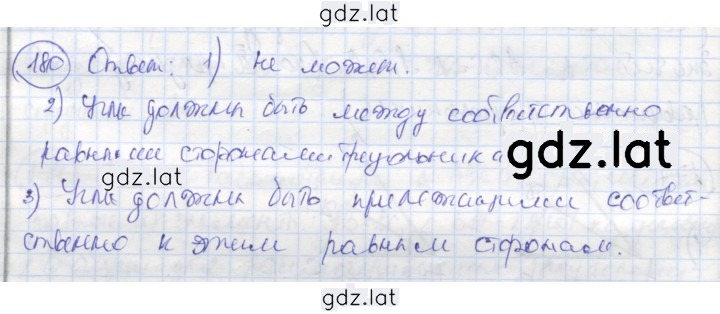 gdz.lat
180 Ответ: 1) не может.
2) Углы должны быть между соответственно
равными сторонами треугольника
gdz.lat
gdz.lat
3) Углы должны быть прилежащими соответ-
ственно к этим равным сторонам.
gdz.lat